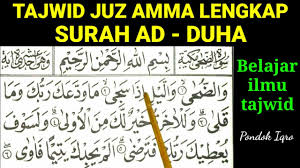 TAJWID JUZ AMMA LENGKAP
SURAH AD - DUHA
بِسْمِ اللّٰهِ الرَّحْمٰنِ الرَّحِيْمِ
وَالضُّحٰى وَالَّيْلِ اِذَا سَجٰى مَا وَدَّعَكَ رَبُّكَ وَمَا
قَلٰى وَلَلْاٰخِرَةُ خَيْرٌ لَّكَ مِنَ الْاُوْلٰى وَلَسَوْفَ
يُعْطِيْكَ رَبُّكَ فَتَرْضٰى اَلَمْ يَجِدْكَ يَتِيْمًا فَاٰوٰى
Belajar
ilmu
tajwid
Pondok Iqro